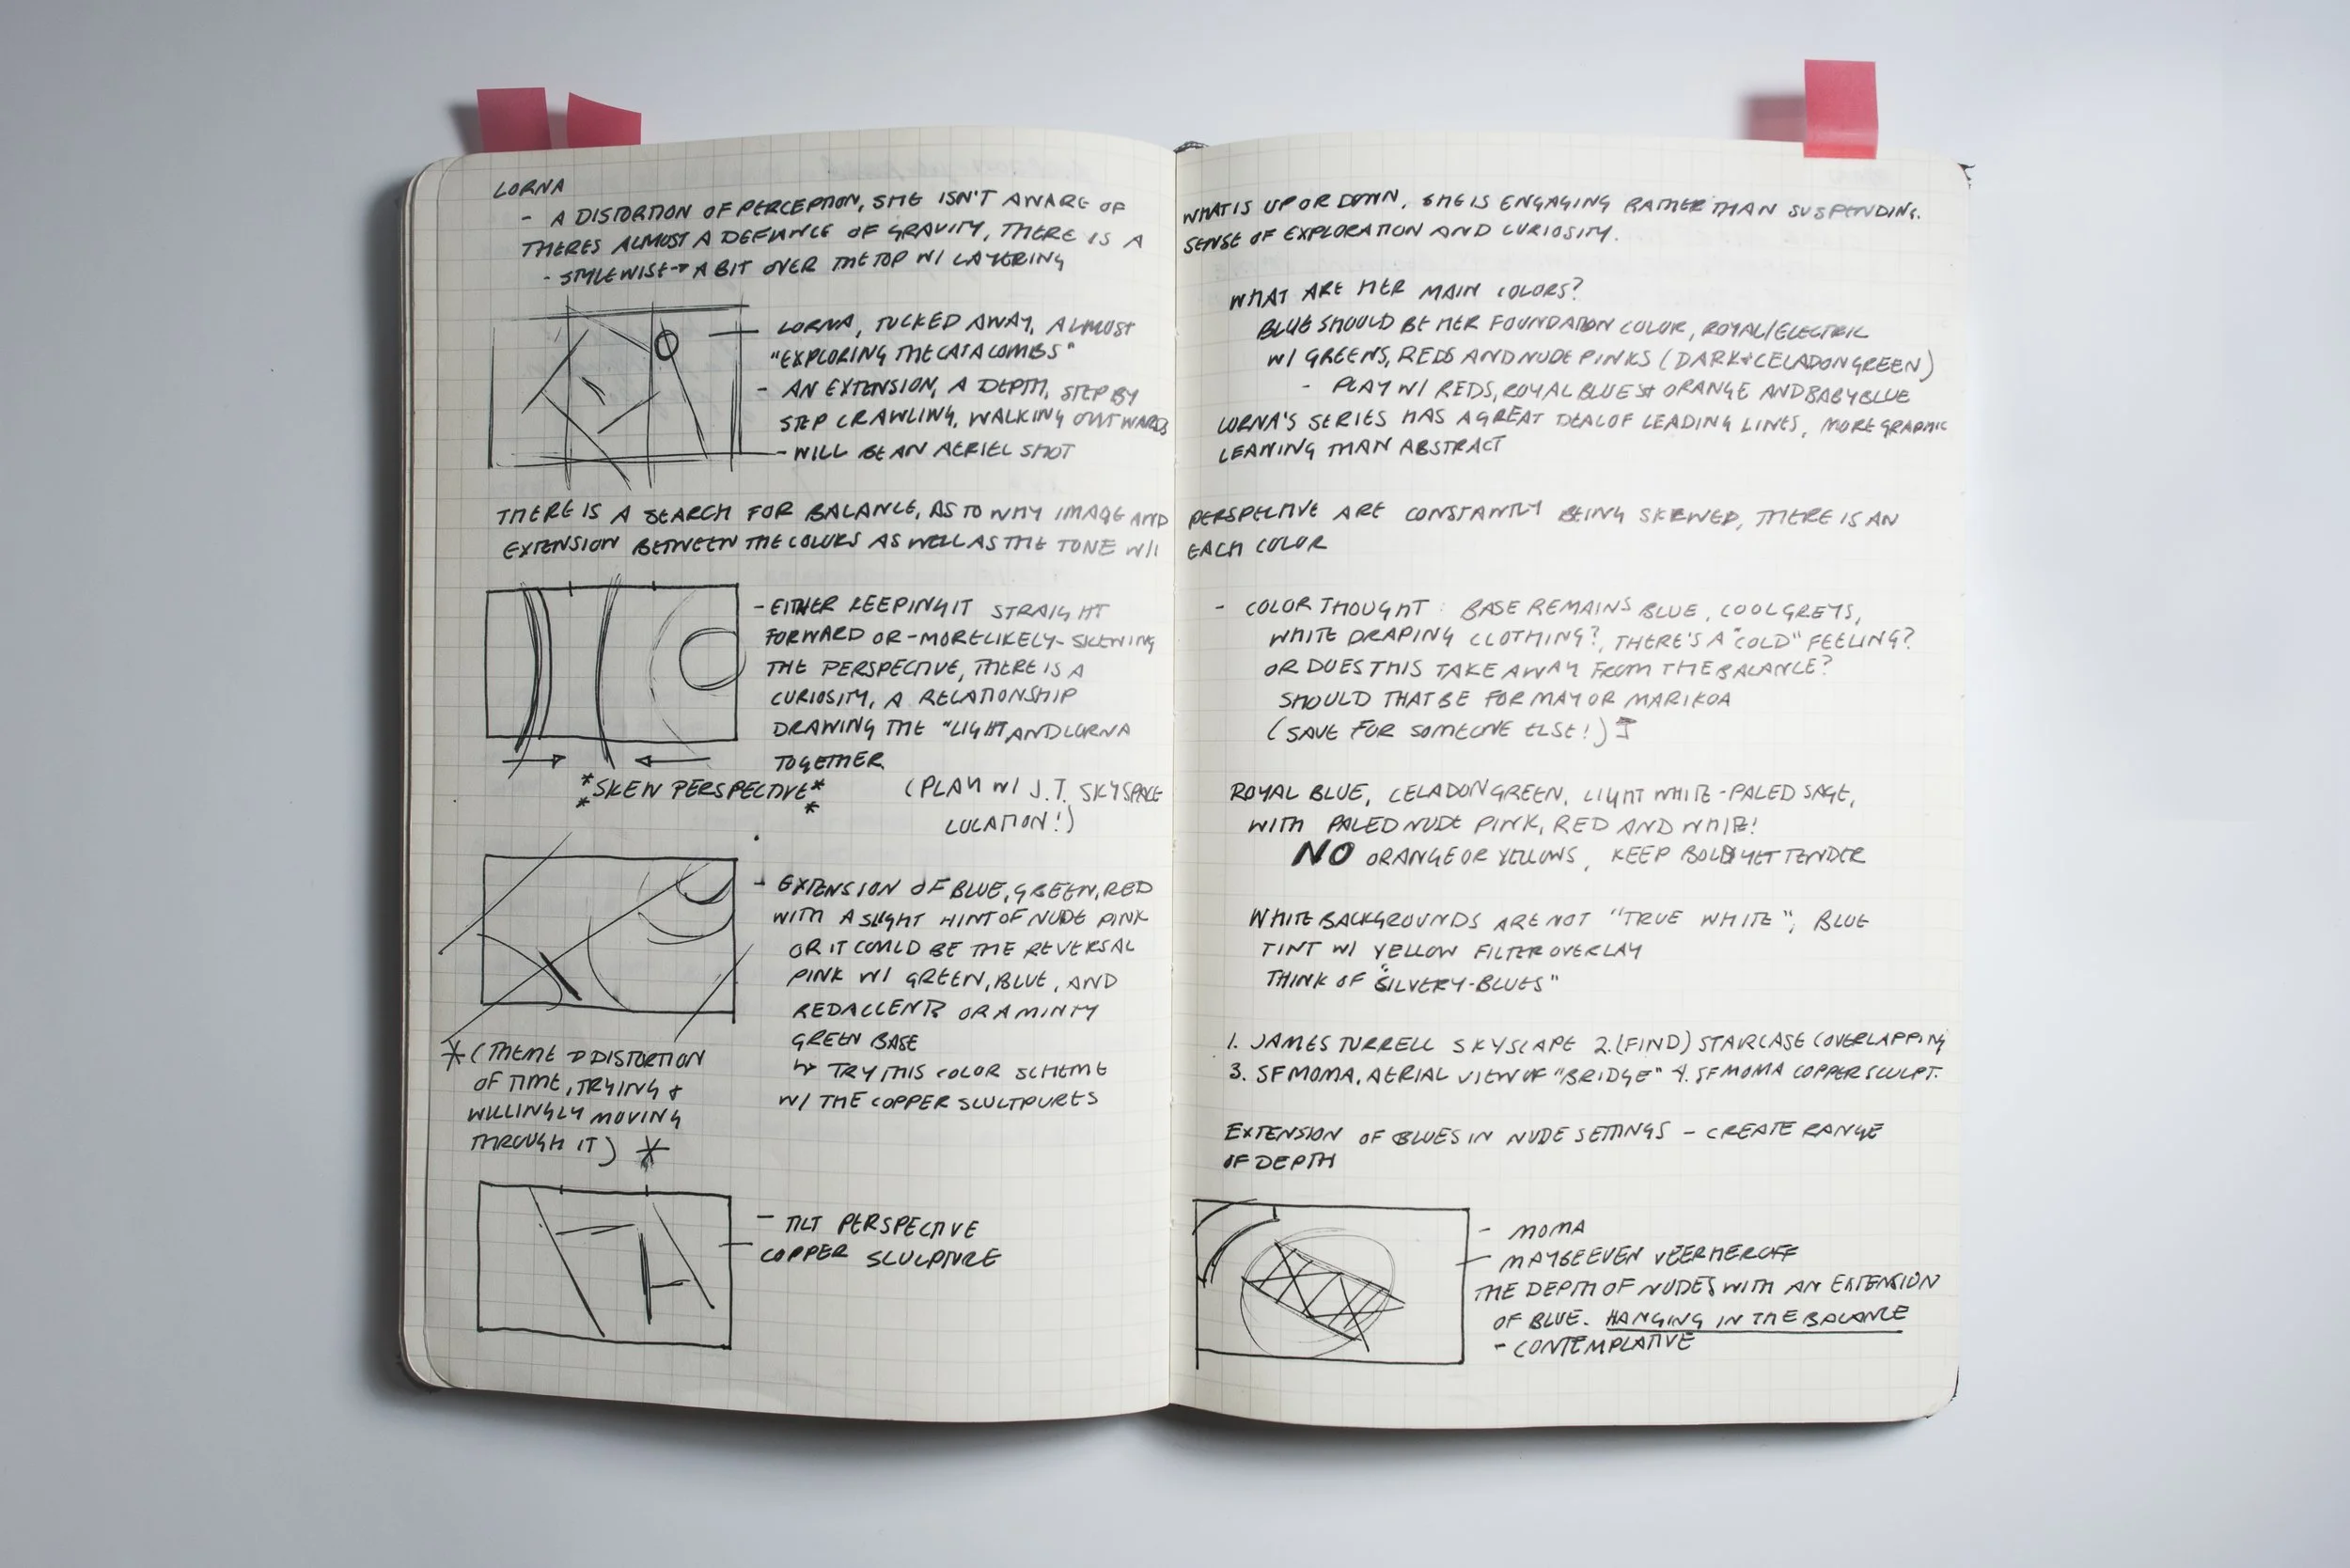 LORNA
- A DISTORTION OF PERCEPTION, SHE ISN'T AWARE OF WHAT IS UP OR DOWN, SHE IS ENGAGING RATHER THAN SUSPENDING.
THERES ALMOST A DEFIANCE OF GRAVITY, THERE IS A SENSE OF EXPLORATION AND CURIOSITY.
- STYLEWISE → A BIT OVER THE TOP W/ LAYERING
LORNA, TUCKED AWAY, ALMOST
"EXPLORING THE CATACOMBS"
- AN EXTENSION, A DEPTH, STEP BY
STEP CRAWLING, WALKING OUTWARDS
- WILL BE AN AERIEL SHOT
WHAT ARE HER MAIN COLORS?
BLUE SHOULD BE HER FOUNDATION COLOR, ROYAL/ELECTRIC
W/ GREENS, REDS AND NUDE PINKS (DARK + CELADON GREEN)
- PLAY W/ REDS, ROYAL BLUES + ORANGE AND BABY BLUE
LORNA'S SERIES HAS A GREAT DEAL OF LEADING LINES, MORE GRAPHIC
LEANING THAN ABSTRACT
THERE IS A SEARCH FOR BALANCE, AS TO WHY IMAGE AND PERSPECTIVE ARE CONSTANTLY BEING SKEWED, THERE IS AN
EXTENSION BETWEEN THE COLORS AS WELL AS THE TONE W/I EACH COLOR
- EITHER KEEPING IT STRAIGHT
FORWARD OR - MORE LIKELY - SKEWING
THE PERSPECTIVE, THERE IS A
CURIOSITY, A RELATIONSHIP
DRAWING THE "LIGHT AND LORNA
TOGETHER
*SKEW PERSPECTIVE*
(PLAY W/ J.T. SKYSPACE
LOCATION!)
- EXTENSION OF BLUE, GREEN, RED
WITH A SLIGHT HINT OF NUDE PINK
OR IT COULD BE THE REVERSAL
PINK W/ GREEN, BLUE, AND
RED ACCENTS OR A MINTY
GREEN BASE
↳ TRY THIS COLOR SCHEME
W/ THE COPPER SCULTPURES
* (THEME → DISTORTION
OF TIME, TRYING +
WILLINGLY MOVING
THROUGH IT) *
- TILT PERSPECTIVE
COPPER SCULPTURE
- COLOR THOUGHT: BASE REMAINS BLUE, COOL GREYS,
WHITE DRAPING CLOTHING?, THERE'S A "COLD" FEELING?
OR DOES THIS TAKE AWAY FROM THE BALANCE?
SHOULD THAT BE FOR MAY OR MARIKOA
(SAVE FOR SOMEONE ELSE!)
ROYAL BLUE, CELADON GREEN, LIGHT WHITE - PALED SAGE,
WITH PALED NUDE PINK, RED AND WHITE!
NO ORANGE OR YELLOWS, KEEP BOLD YET TENDER
WHITE BACKGROUNDS ARE NOT "TRUE WHITE", BLUE
TINT W/ YELLOW FILTER OVERLAY
THINK OF "SILVERY-BLUES"
1. JAMES TURRELL SKYSCAPE 2. (FIND) STAIRCASE (OVERLAPPING
3. SFMOMA, AERIAL VIEW OF "BRIDGE" 4. SFMOMA COPPER SCULPT.
EXTENSION OF BLUES IN NUDE SETTINGS - CREATE RANGE
OF DEPTH
- MOMA
- MAYBE EVEN VEERHER OFF
THE DEPTH OF NUDES WITH AN EXTENSION
OF BLUE. HANGING IN THE BALANCE
- CONTEMPLATIVE